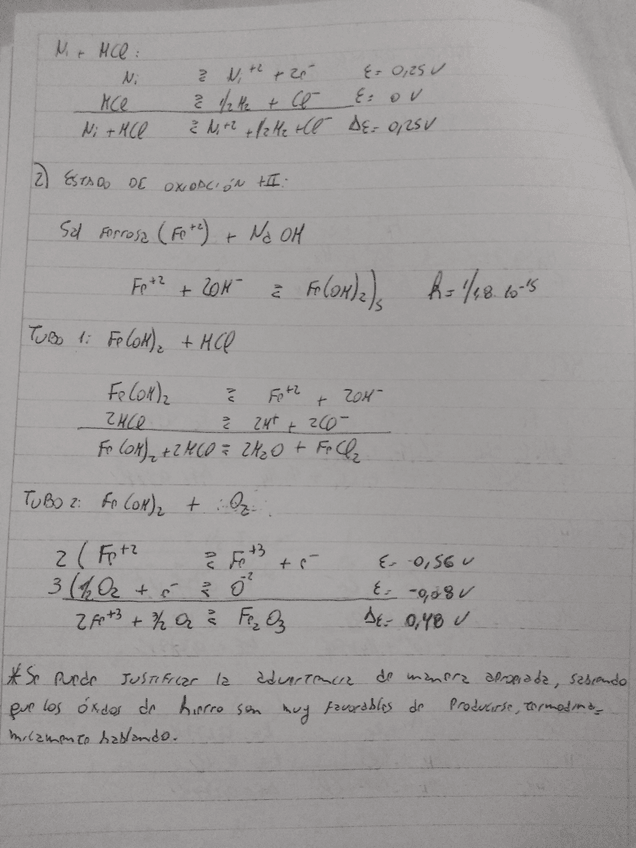 Ni + HCl:
Ni ⇌ Ni⁺² + 2e⁻ ε= 0,25 V
HCl ⇌ ½H₂ + Cl⁻ ε= 0 V
Ni + HCl ⇌ Ni⁺² + ½H₂ + Cl⁻ Δε= 0,25V
2) ESTADO DE OXIDACIÓN +II:
Sal Ferrosa (Fe⁺²) + NaOH
Fe⁺² + 2OH⁻ ⇌ Fe(OH)₂)s k= 1/1,8.10⁻¹⁵
TUBO 1: Fe(OH)₂ + HCl
Fe(OH)₂ ⇌ Fe⁺² + 2OH⁻
2HCl ⇌ 2H⁺ + 2Cl⁻
Fe(OH)₂ + 2HCl ⇌ 2H₂O + FeCl₂
TUBO 2: Fe(OH)₂ + O₂
2 (Fe⁺² ⇌ Fe⁺³ + e⁻ ε= 0,56 V
3 (½O₂ + e⁻ ⇌ O⁻² ε= -0,08 V
2Fe⁺³ + 3/2 O₂ ⇌ Fe₂O₃ Δε= 0,48 V
* Se puede JUSTIFICAR la advertencia de manera apropiada, sabiendo
que los óxidos de hierro son muy favorables de Producirse, termodiná=
micamente hablando.